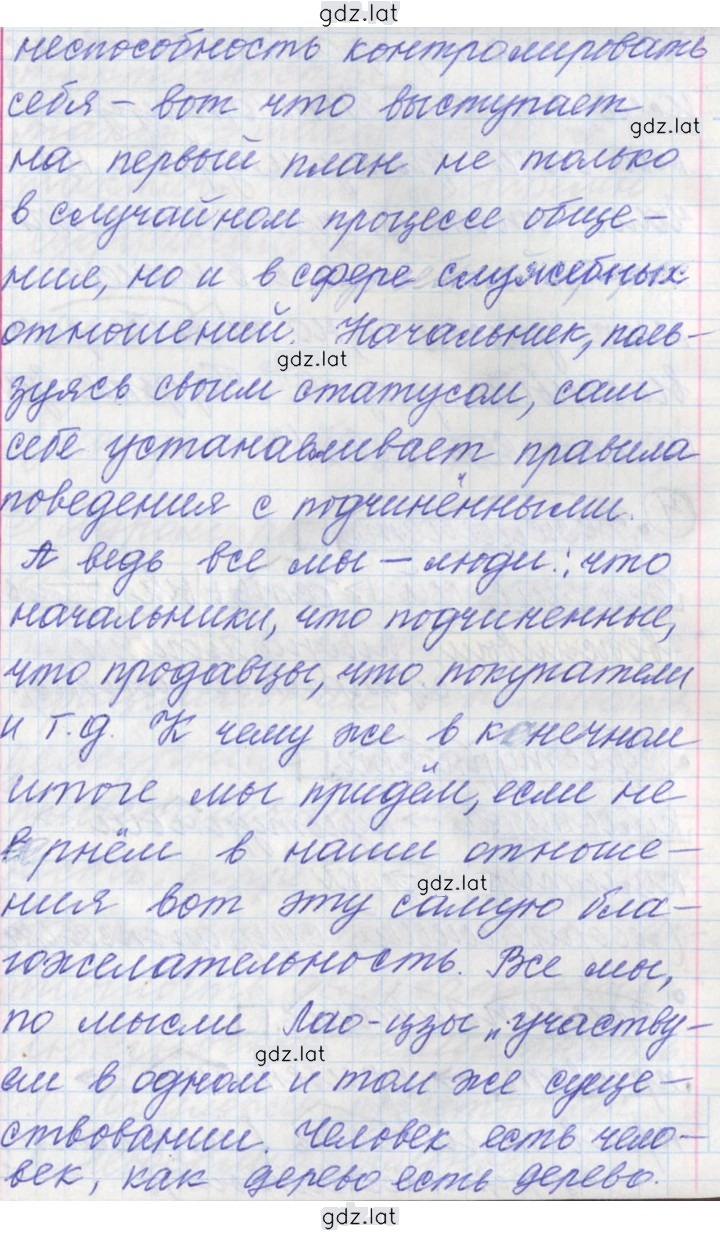 gdz.lat
неспособность контролировать
себя – вот что выступает
gdz.lat
на первый план не только
в случайном процессе обще-
ния, но и в сфере служебных
отношений. Начальник, поль-
gdz.lat
зуясь своим статусом, сам
себе устанавливает правила
поведения с подчинёнными.
А ведь все мы – люди: что
начальники, что подчиненные,
что продавцы, что покупатели
и т.д. К чему же в конечном
итоге мы придём, если не
вернём в наши отноше-
gdz.lat
ния вот эту самую бла-
гожелательность. Все мы,
по мысли Лао-цзы „участву-
gdz.lat
ем в одном и том же суще-
ствовании. Человек есть чело-
век, как дерево есть дерево.
gdz.lat